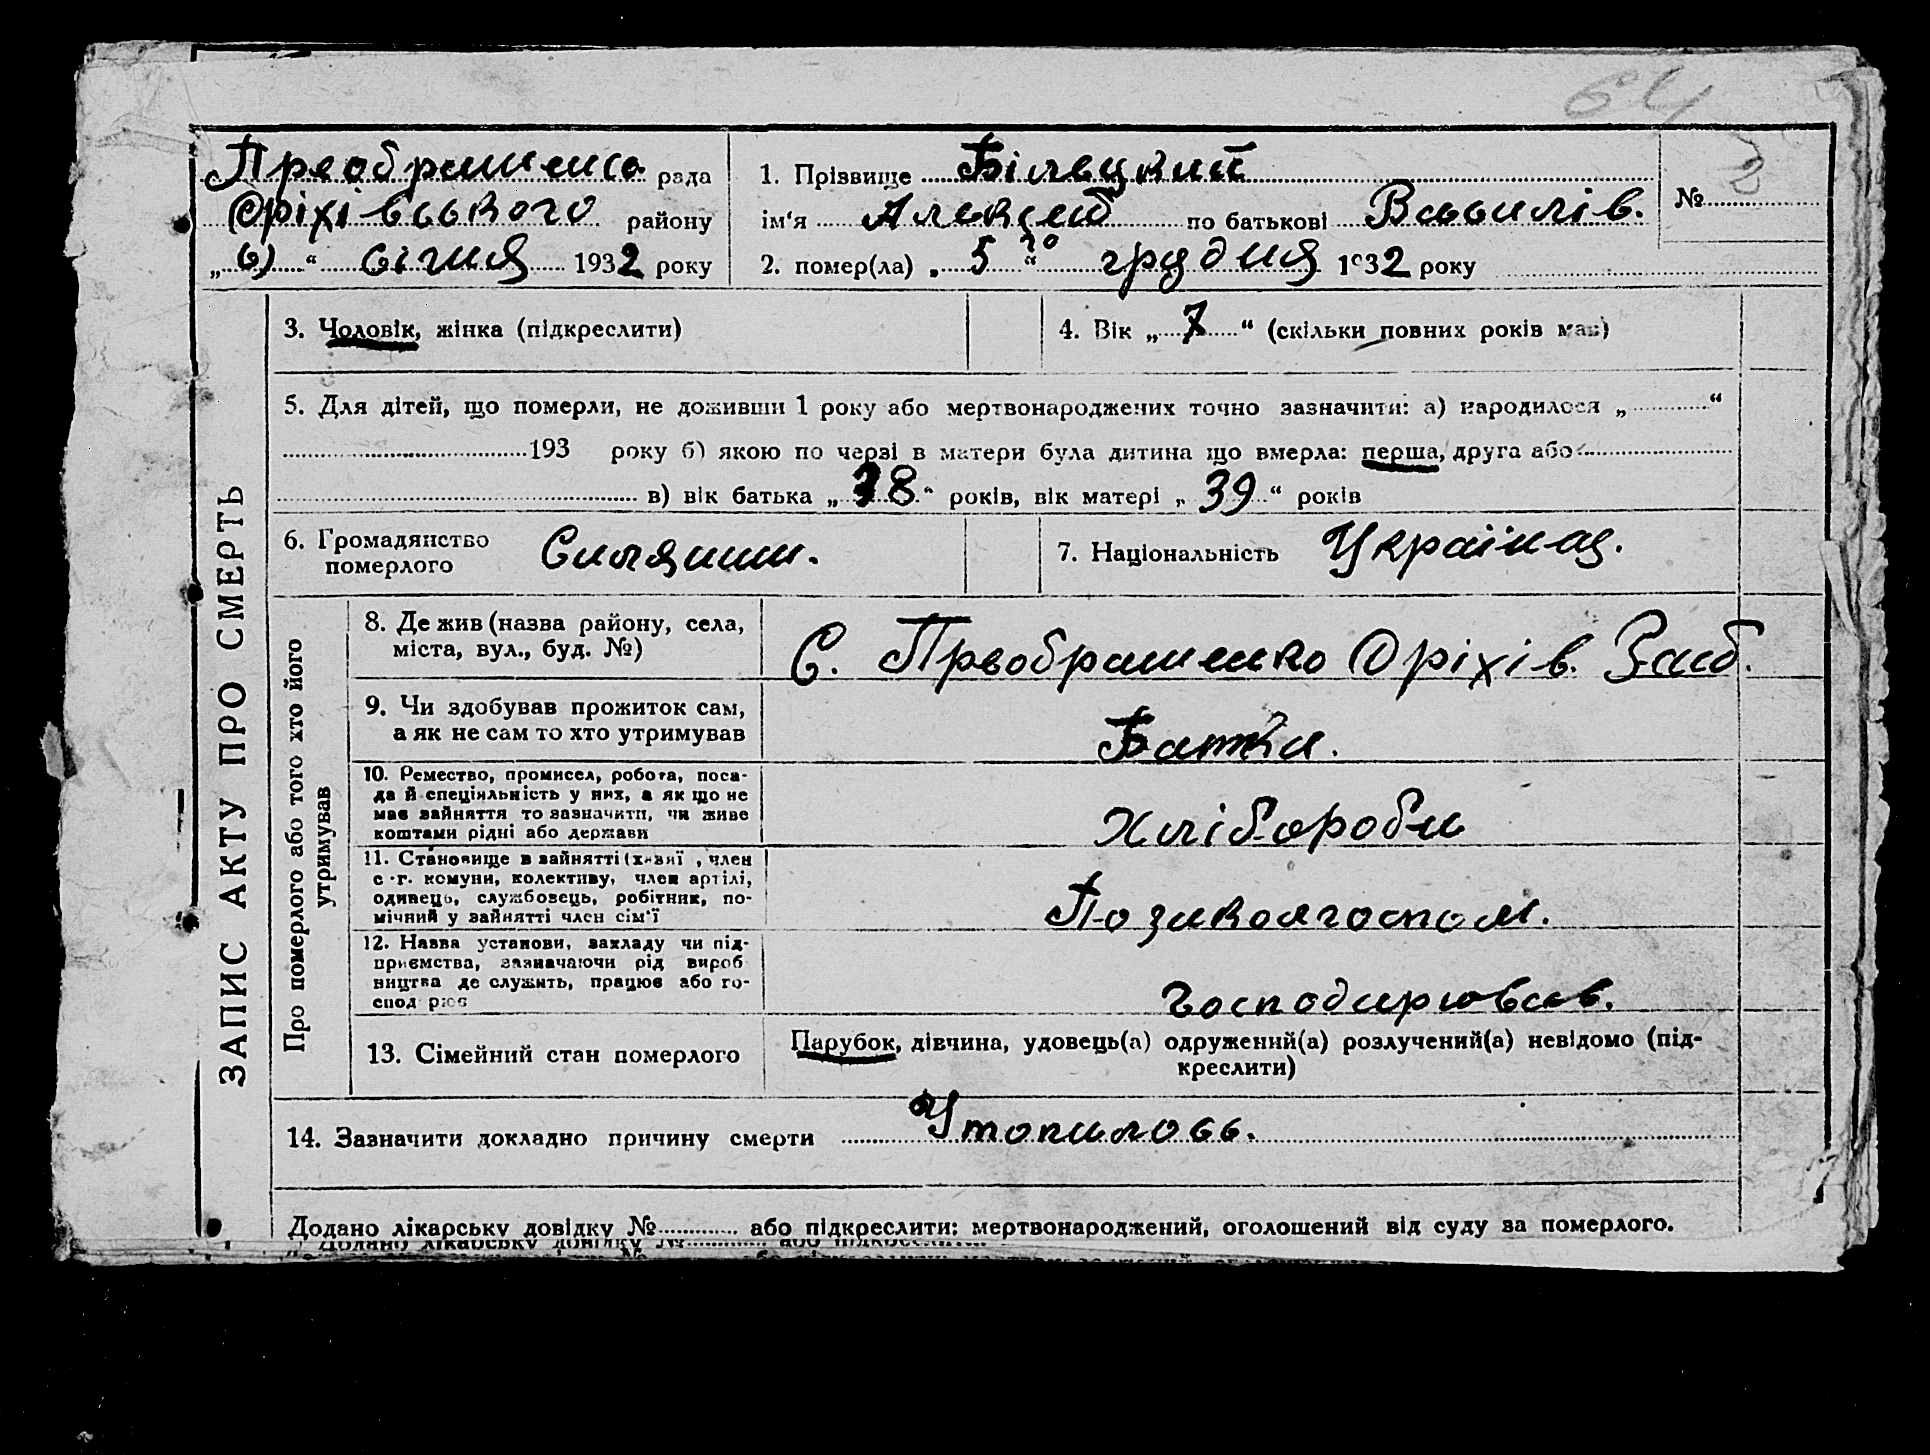 64
Преображенсо рада
Оріхівського району
„ 6) “ січня 1932 року
1. Прізвище Білецкий
ім‘я Алексей по батькові Василів.
2. помер(ла) „ 5 го “ грудня 1932 року
№ 2
ЗАПИС АКТУ ПРО СМЕРТЬ
3. Чоловік, жінка (підкреслити)
4. Вік „ 7 “ (скільки повних років мав)
5. Для дітей, що померли, не доживши 1 року або мертвонароджених точно зазначити: а) народилося „ “
193 року б) якою по черзі в матери була дитина що вмерла: перша, друга або
в) вік батька „ 38 “ років, вік матері „ 39 “ років
6. Громадянство
померлого
Силяним.
7. Національність Українец.
Про померлого або того хто його
утримував
8. Де жив (назва району, села,
міста, вул., буд. №)
С. Преображенко Оріхів. Заб.
9. Чи здобував прожиток сам,
а як не сам то хто утримував
Батки.
10. Ремество, промисел, робота, поса-
да й спеціяльність у них, а як що не
має зайняття то зазначити, чи живе
коштами рідні або держави
Хлібороби
11. Становище в зайнятті (хазяї, член
с.-г. комуни, колективу, член артілі,
одинець, службовець, робітник, по-
мічний у зайнятті член сім‘ї
12. Назва установи, закладу чи під-
приємства, зазначаючи рід вироб
ництва де служить, працює або го-
спод рює
Господарював.
13. Сімейний стан померлого
Парубок, дівчина, удовець(а) одружений(а) розлучений(а) невідомо (під-
креслити)
14. Зазначити докладно причину смерти Утопилось.
Додано лікарську довідку № або підкреслити: мертвонароджений, оголошений від суду за померлого.